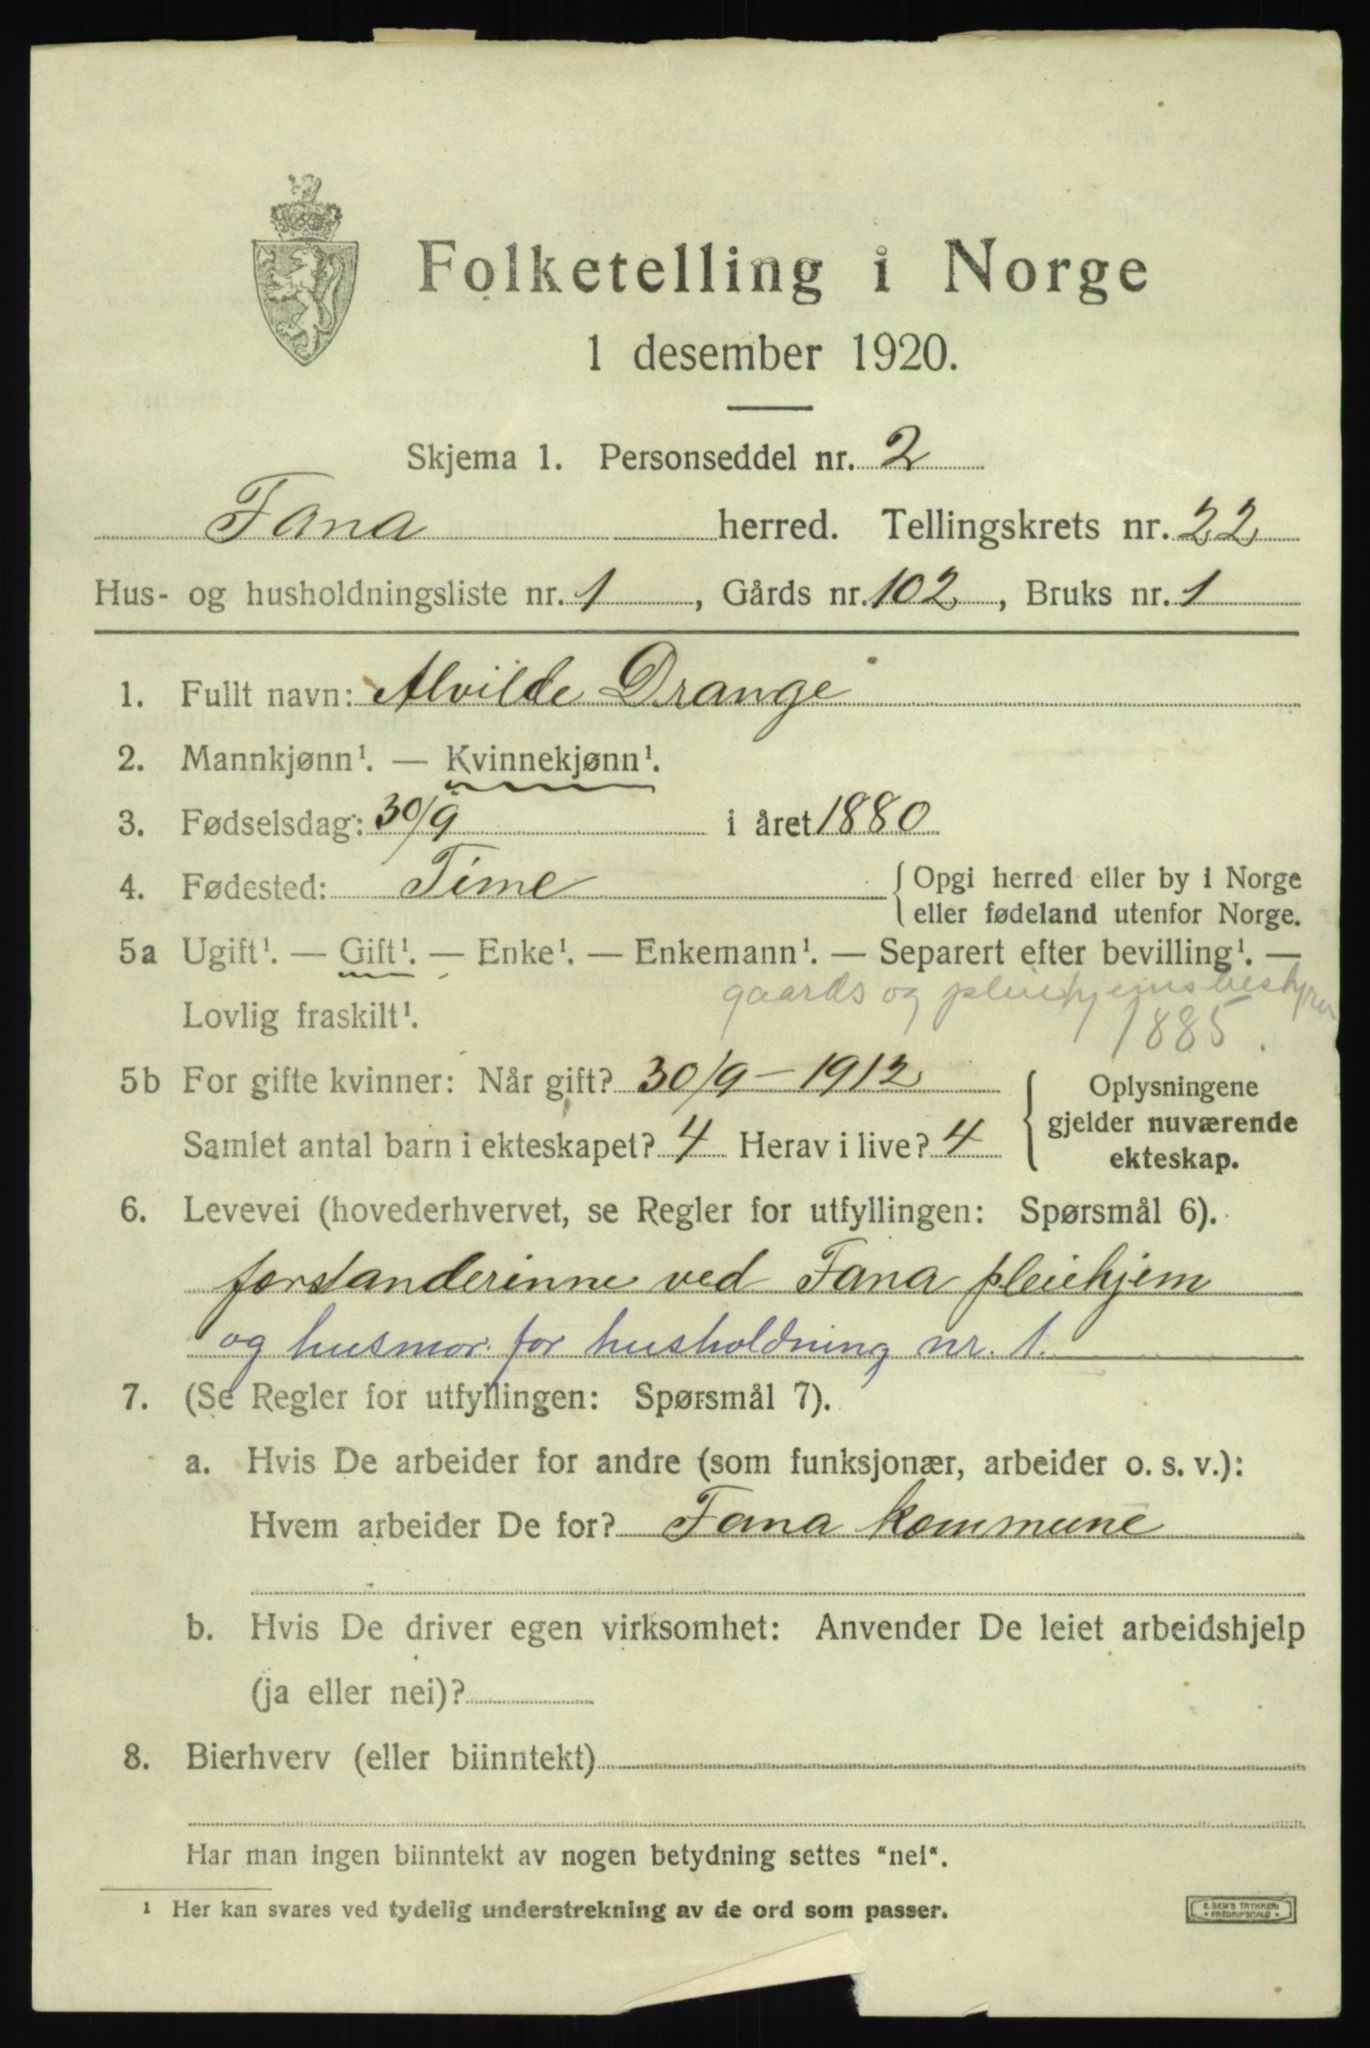 Folketelling i Norge
1 desember 1920.
Skjema 1. Personseddel nr. 2
Fana herred. Tellingskrets nr. 22
Hus- og husholdningsliste nr. 1, Gårds nr. 102, Bruks nr. 1
1. Fullt navn: Alvilde Drange
2. Mannkjønn¹. — Kvinnekjønn¹.
3. Fødselsdag: 30/9 i året 1880
4. Fødested: Time { Opgi herred eller by i Norge
eller fødeland utenfor Norge.
5a Ugift¹. — Gift¹. — Enke¹. — Enkemann¹. — Separert efter bevilling¹. —
gaards og pleiehjemsbestyrer
Lovlig fraskilt¹. 1885.
5b For gifte kvinner: Når gift? 30/9 – 1912 { Oplysningene
gjelder nuværende
Samlet antal barn i ekteskapet? 4 Herav i live? 4 ekteskap.
6. Levevei (hovederhvervet, se Regler for utfyllingen: Spørsmål 6).
forstanderinne ved Fana pleiehjem
og husmor for husholdning nr. 1.
7. (Se Regler for utfyllingen: Spørsmål 7).
a. Hvis De arbeider for andre (som funksjonær, arbeider o. s. v.):
Hvem arbeider De for? Fana kommune
b. Hvis De driver egen virksomhet: Anvender De leiet arbeidshjelp
(ja eller nei)?
8. Bierhverv (eller biinntekt)
Har man ingen biinntekt av nogen betydning settes "nei".
¹ Her kan svares ved tydelig understrekning av de ord som passer.
E. SEM'S TRYKKERI
* FREDRIKSHALD *